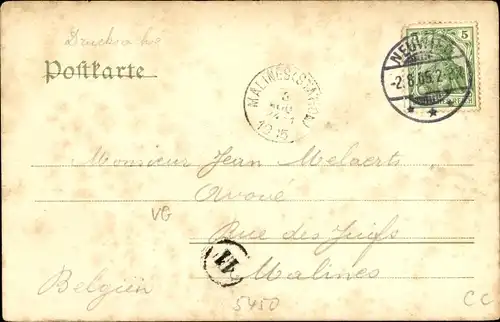 Drucksache
Postkarte
MALINES (STATION)
1905
NEUWIED
-2.8.05.2-
5
Monsieur Jean Melaerts
Avoué
VG
Rue des Juifs
11
Malines
Belgien
5450
CC